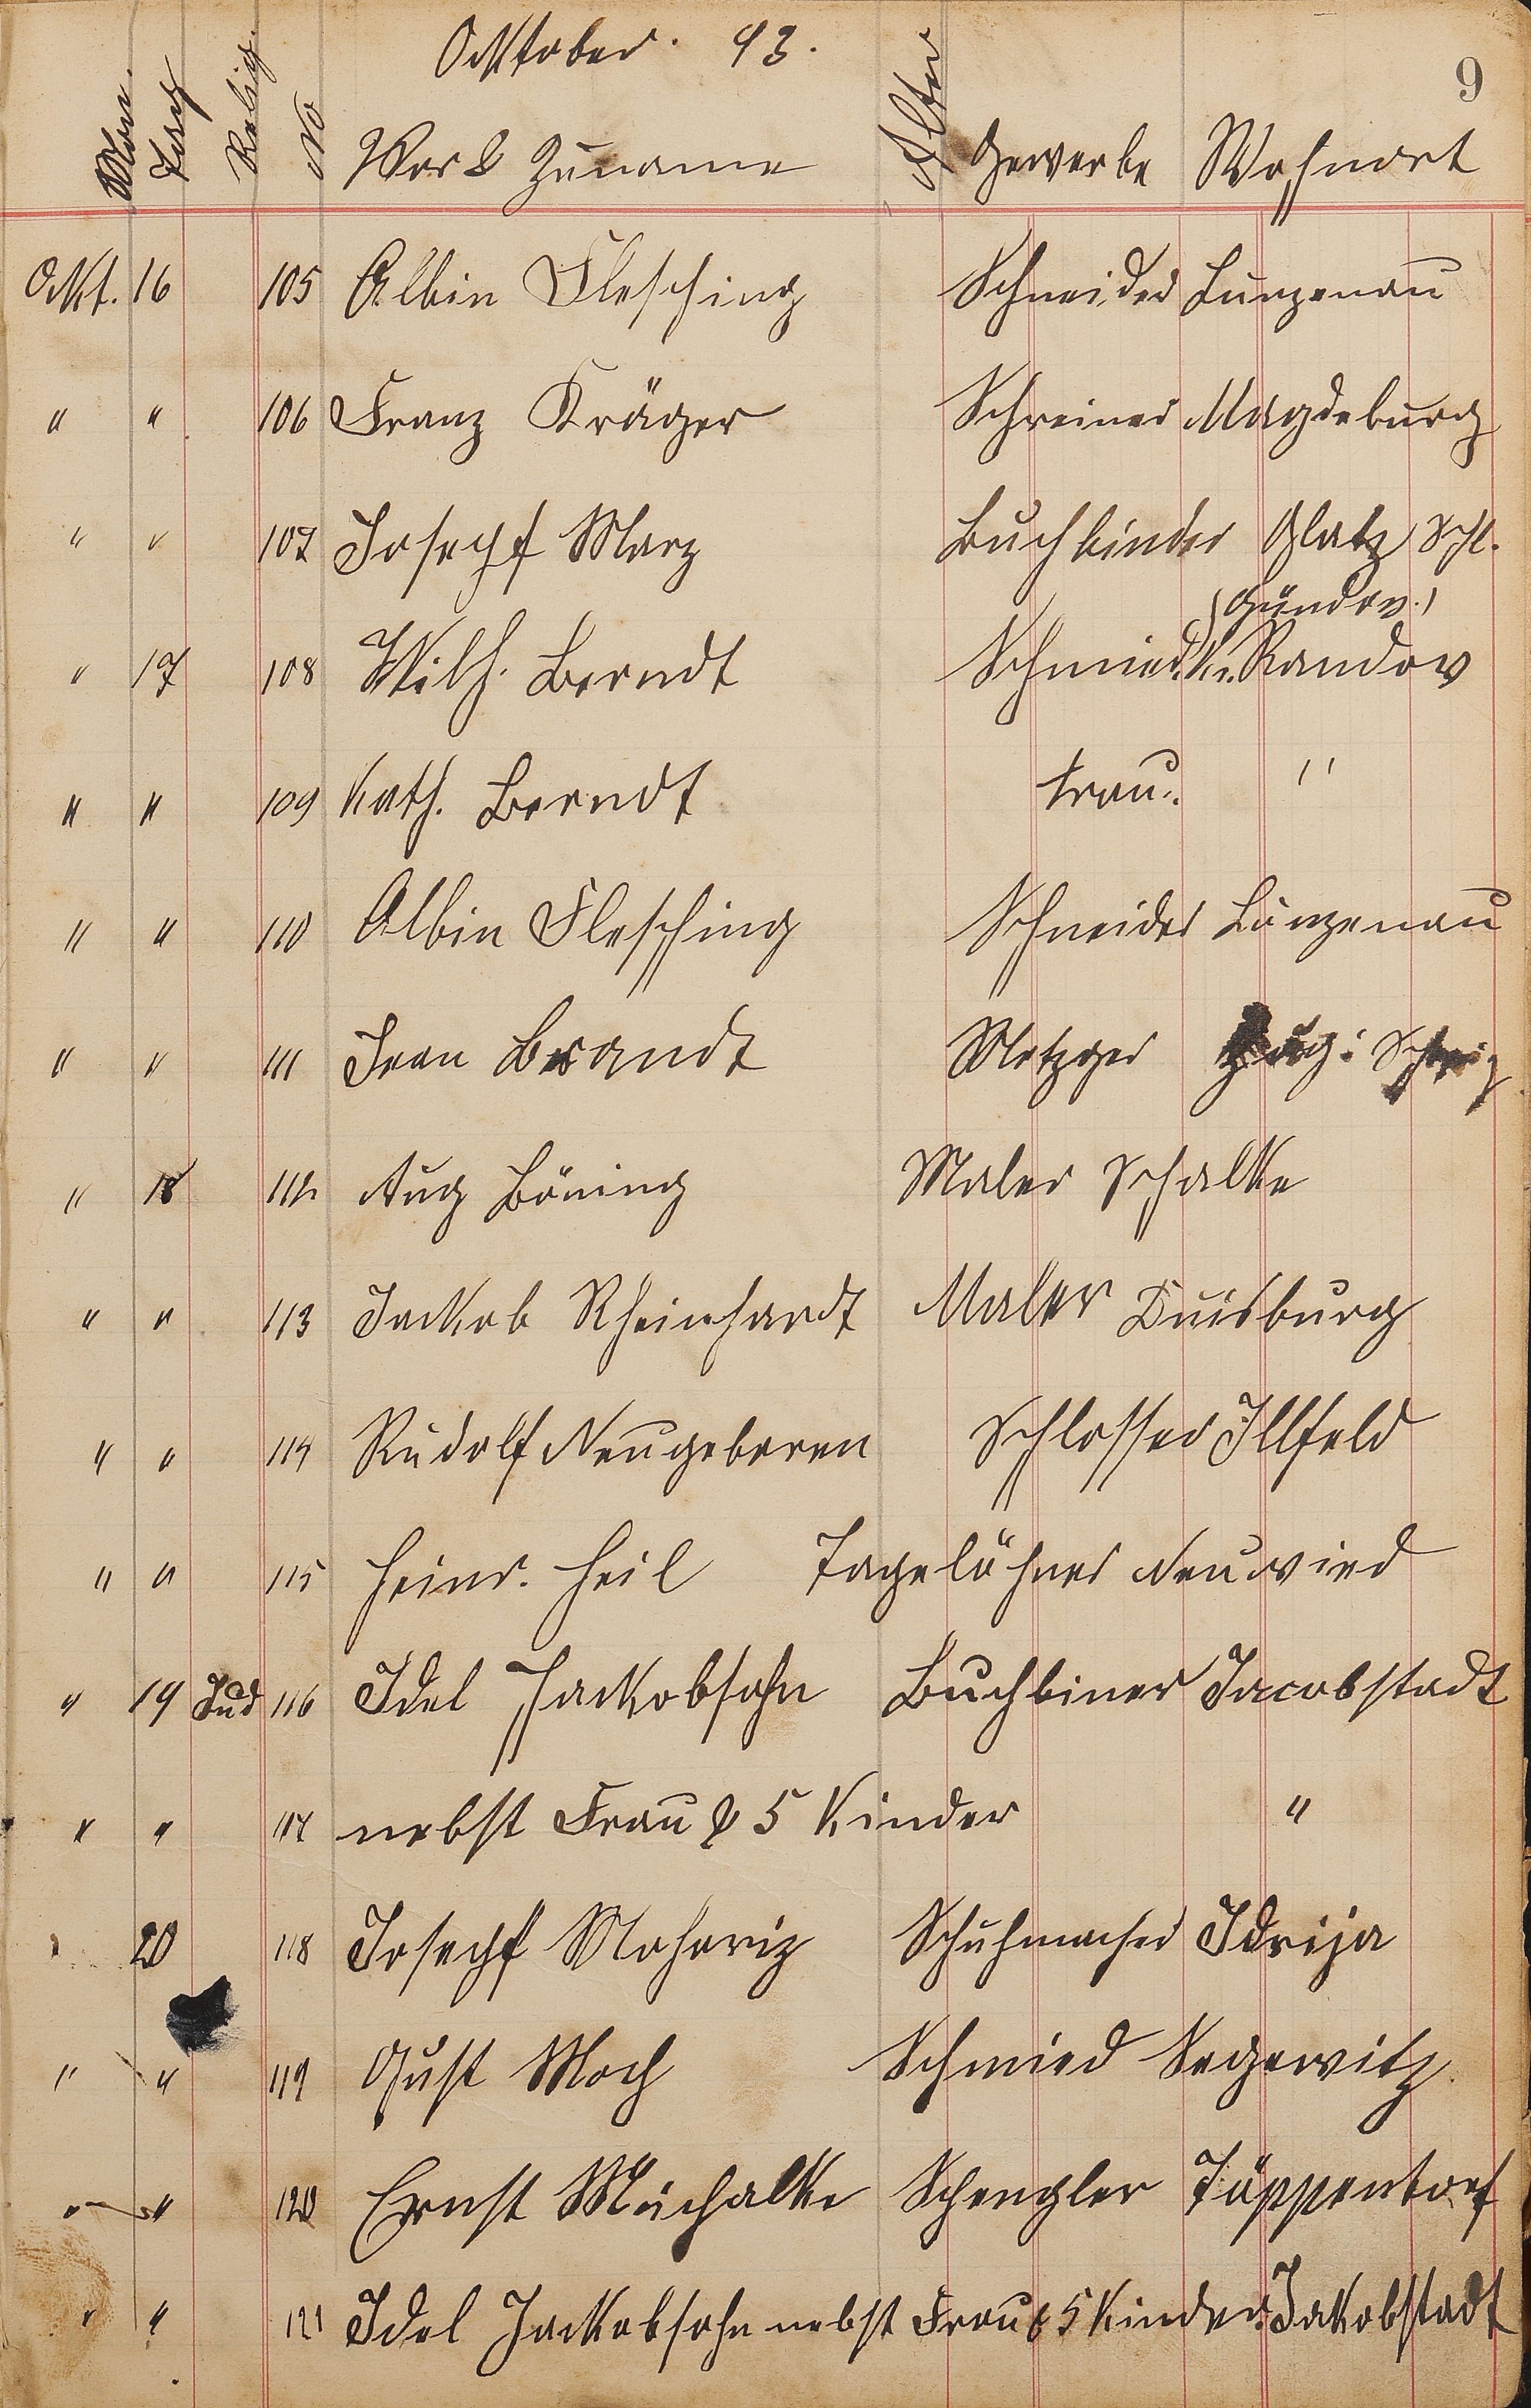 Ocktober. 93.
9
Mon. Tag Relig. No Vor & Zuname Alter Gewerbe Wohnort
Okt. 16 105 Albin Flesching Schneider Lunzenau
" " 106 Franz Kräger Schreiner Magdeburg
" " 107 Josepf Marz Buchbinder Glatz Schl.
(Gündow.)
" 17 108 Wilh. Berndt Schmied. Kr. Randow
" " 109 Kath. Berndt Frau. "
" " 110 Albin Flesching Schneider Lunzenau
" " 111 Jean Brandt Metzger Zug: Schweiz
" 18 112 Aug Böning Maler Schalke
" " 113 Jackob Rheinhardt Maler Duisburg
" " 114 Rudolf Neugeboren Schlosser Illfeld
" " 115 Heinr. Heil Tagelöhner Neuwied
" 19 Jud 116 Idel Jackobsohn Buchbiner Jacobstadt
" " 117 nebst Frau & 5 Kinder "
" 20 118 Josepf Mohoriz Schuhmacher Idrija
" " 119 Gust Moch Schmied Segewitz
" " 120 Ernst Müchalke Schengler Töppendorf
" " 121 Idel Jackobsohn nebst Frau & 5 Kinder. Jakobstadt